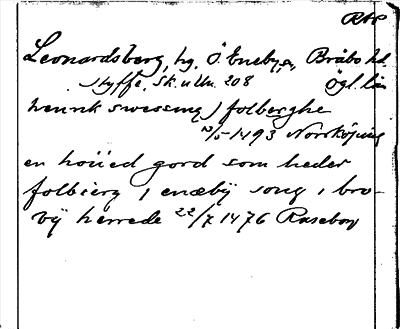 RAP
Leonardsberg, hg, Ö. Eneby s, Bråbo hd.
Styffe, Sk. u. Un. 208 Ögl. län
henrik swenssing j folberghe
13/5 1493 Norrköping
en houed gord som heder
folbierg i enæby song i bro-
vij herrede 22/7 1476 Raseborg